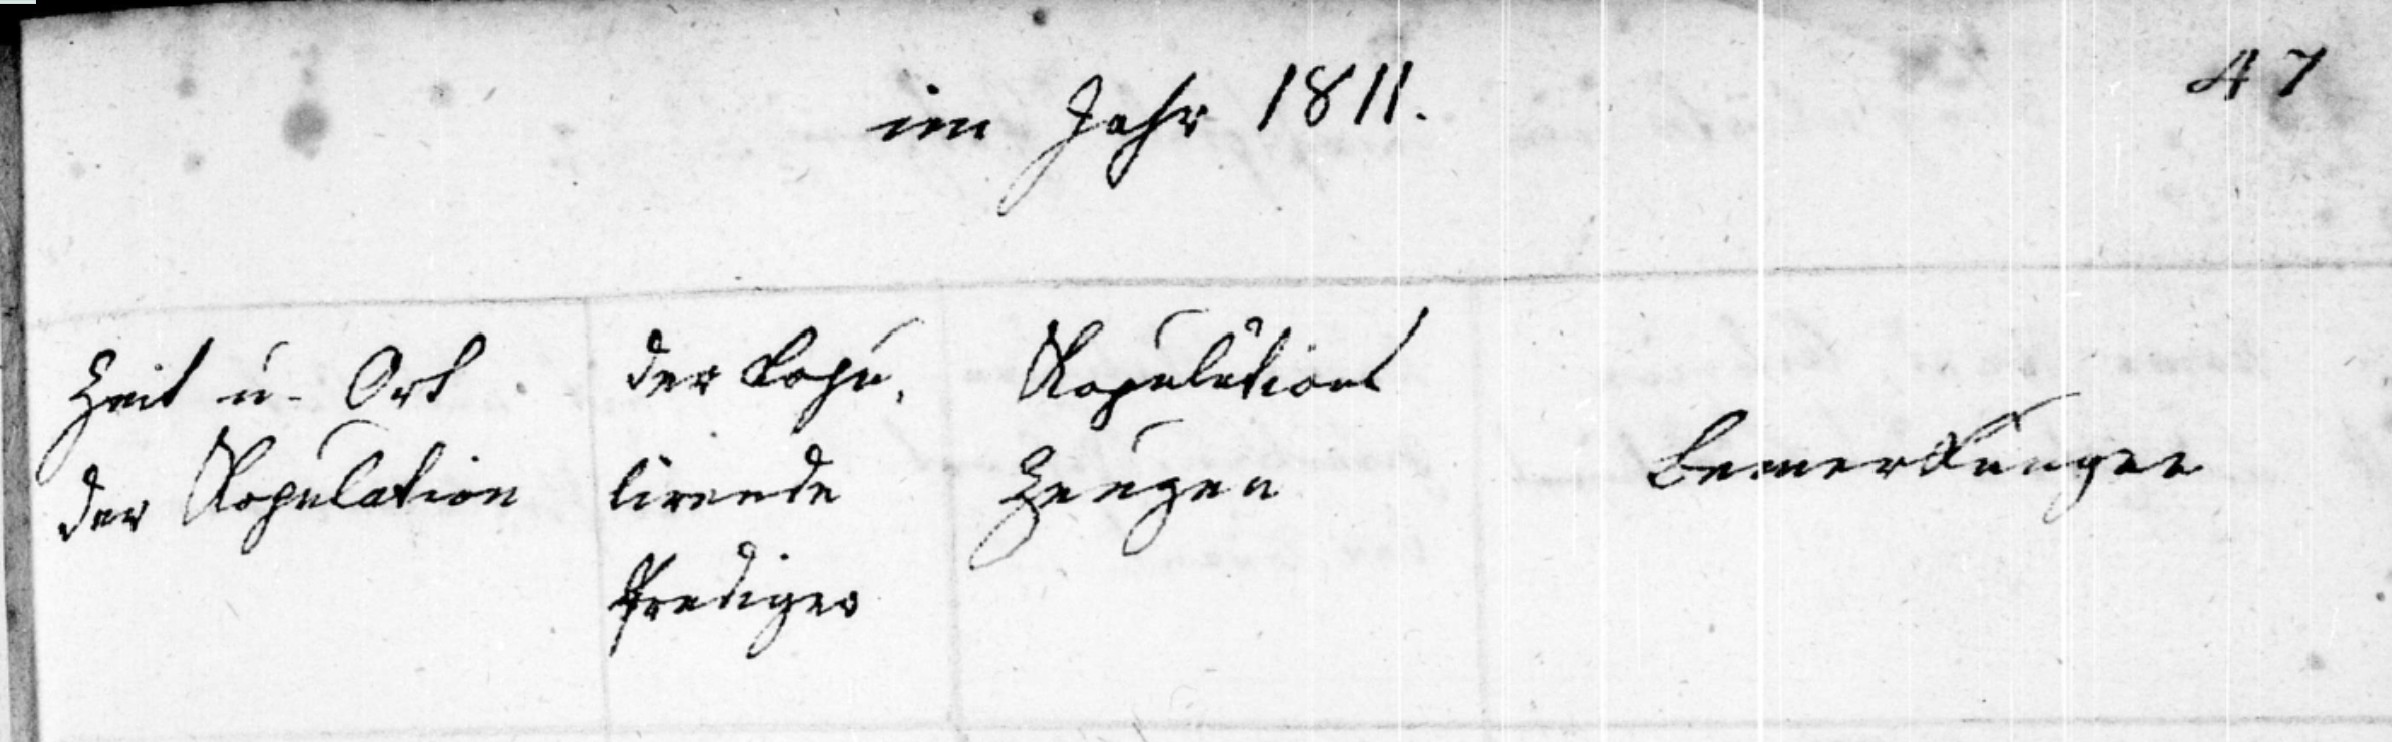 im Jahr 1811.
47
Zeit u. Ort
der Kopulation
der kopu,
lirende
Prediger
Kopulations
Zeugen
Bemerkungen